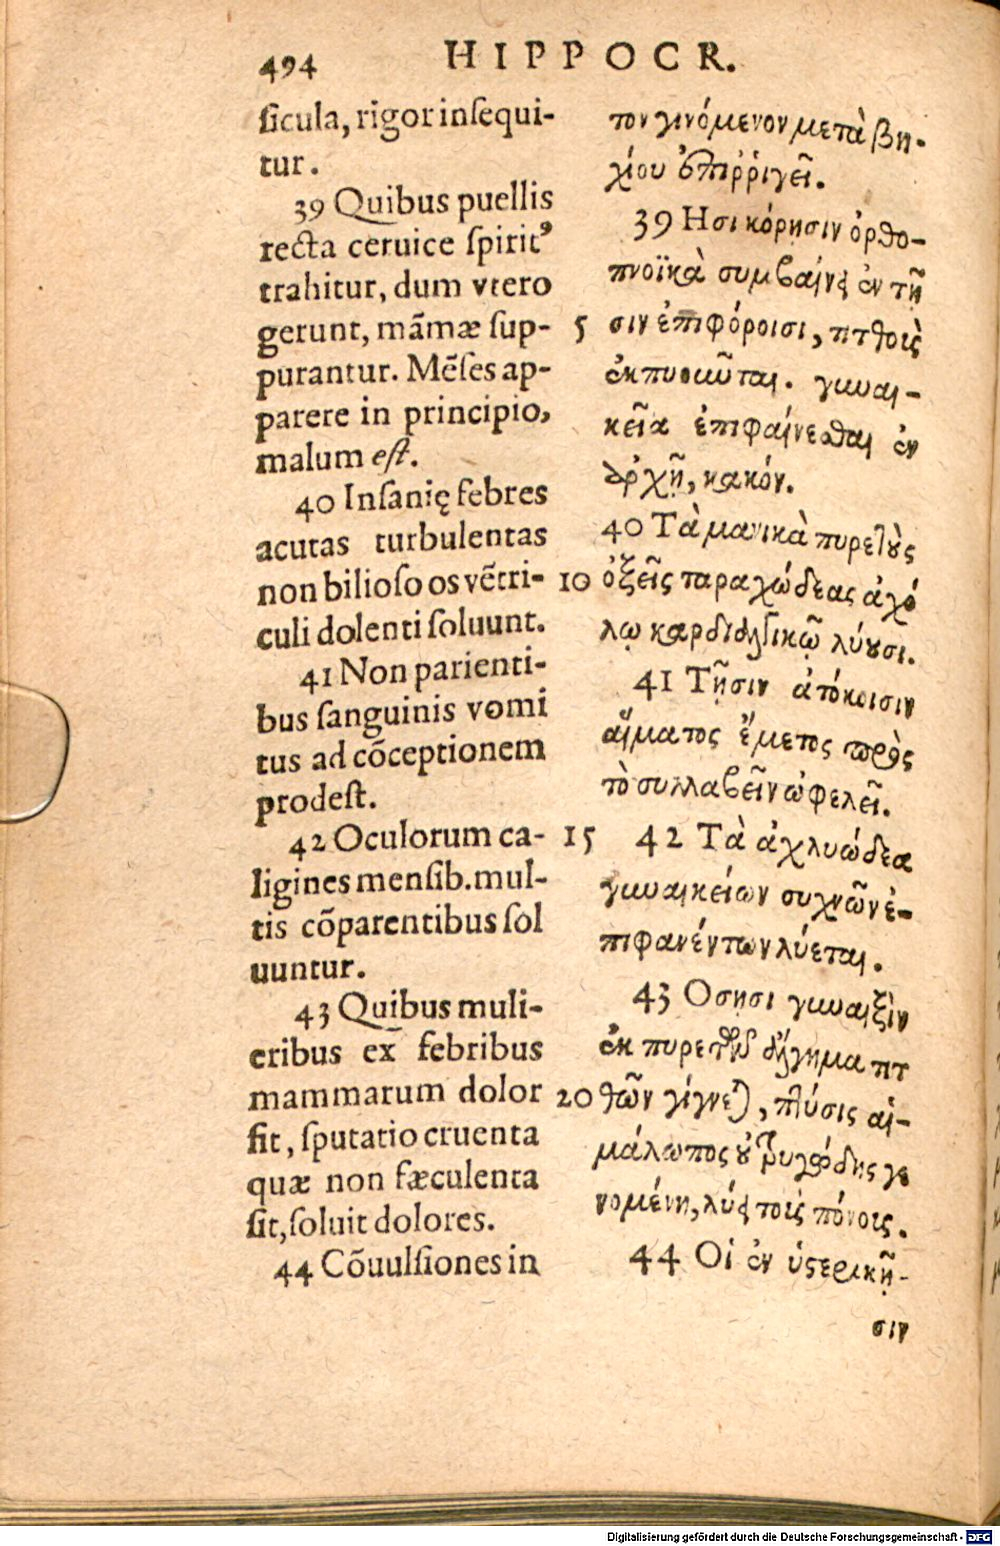 494 HIPPOCR.
ſicula, rigor inſequi-
tur.
39 Quibus puellis
recta ceruice ſpirit⁹
trahitur, dum vtero
gerunt, mãmæ ſup-
purantur. Mẽſes ap-
parere in principio,
malum eſt.
40 Inſanię febres
acutas turbulentas
non bilioſo os vẽtri-
culi dolenti ſoluunt.
41 Non parienti-
bus ſanguinis vomi
tus ad cõceptionem
prodeſt.
42 Oculorum ca-
ligines menſib. mul-
tis cõparentibus ſol
uuntur.
43 Quibus muli-
eribus ex febribus
mammarum dolor
fit, ſputatio cruenta
quæ non fæculenta
ſit, ſoluit dolores.
44 Cõuulſiones in
τον γινόμενον μετὰ βη-
χίου ἐπιῤῥιγεῖ.
39 Ησι κόρησιν ὀρθο-
πνοϊκὰ συμβαίνει ἐν τῇ
5 σιν ἐπιφόροισι, τιτθοὶς
ἐκπυοῦται. γυναι-
κεῖα ἐπιφαίνεσθαι ἐν
ἀρχῇ, κακόν.
40 Τὰ μανικὰ πυρετοὺς
10 ὀξεῖς ταραχώδεας ἀχό
λῳ καρδιαλγικῷ λύουσι.
41 Τῇσιν ἀτόκοισιν
αἵματος ἔμετος πρὸς
τὸ συλλαβεῖν ὠφελεῖ.
15 42 Τὰ ἀχλυώδεα
γυναικείων συχνῶν ἐ-
πιφανέντων λύεται.
43 Οσησι γυναιξὶν
ἐκ πυρετοῦ ἄλγημα τιτ
20 θῶν γίγνεται, πτύσις αἱ-
μάλωπος οὐ τρυγώδης γε
νομένη, λύει τοὺς πόνοις.
44 Οἱ ἐν ὑστερικῇ-
σιν
Digitalisierung gefördert durch die Deutsche Forschungsgemeinschaft - DFG